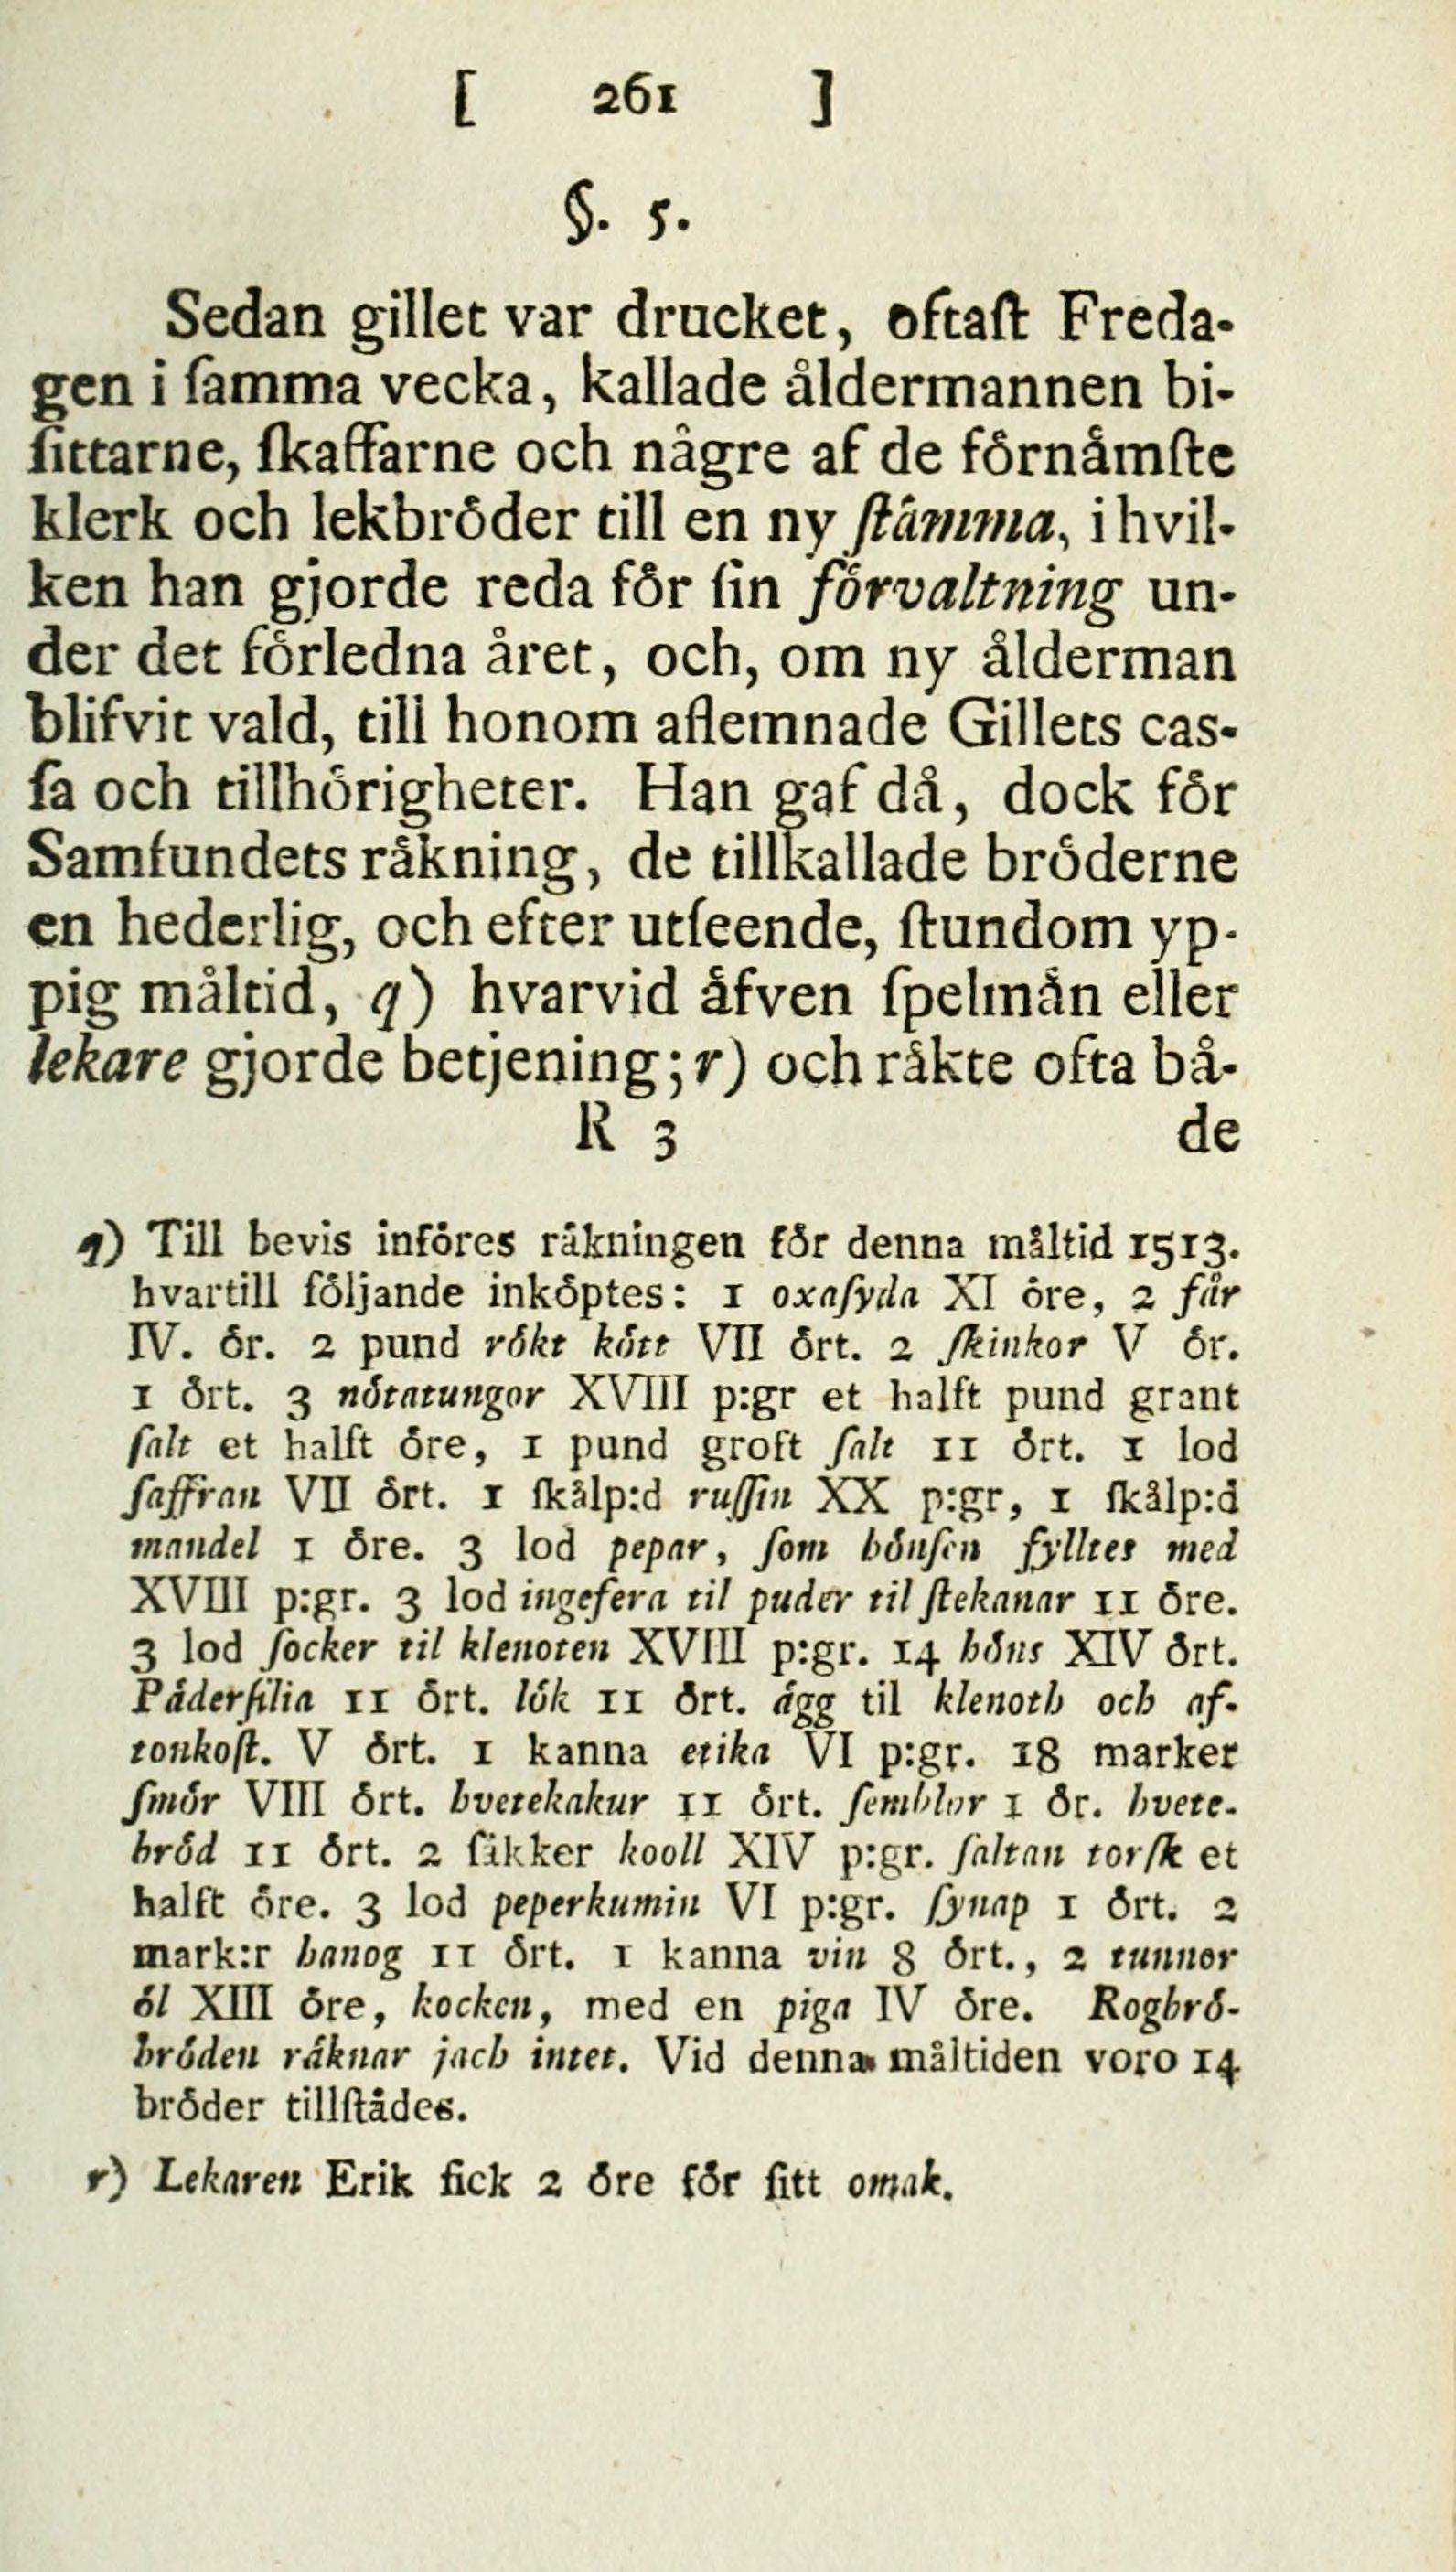 [ 261 ]
§. 5.
Sedan gillet var drucket, oftaſt Freda-
gen i ſamma vecka, kallade åldermannen bi-
ſittarne, ſkaffarne och någre af de förnämſte
klerk och lekbröder till en ny ſtämma, i hvil-
ken han gjorde reda för ſin förvaltning un-
der det förledna året, och, om ny ålderman
blifvit vald, till honom aflemnade Gillets cas-
ſa och tillhörigheter. Han gaf då, dock för
Samfundets räkning, de tillkallade bröderne
en hederlig, och efter utſeende, ſtundom yp-
pig måltid, q) hvarvid äfven ſpelmän eller
lekare gjorde betjening; r) och räkte ofta bå-
R 3 de
q) Till bevis införes räkningen för denna måltid 1513.
hvartill följande inköptes: 1 oxaſyda XI öre, 2 får
IV. ör. 2 pund rökt kött VII ört. 2 ſkinkor V ör.
1 ört. 3 nötatungor XVIII p:gr et halft pund grant
ſalt et halft öre, 1 pund groft ſalt 11 ört. 1 lod
ſaffran VII ört. 1 ſkålp:d ruſſin XX p:gr, 1 ſkålp:d
mandel 1 öre. 3 lod pepar, ſom hönſen fylltes med
XVIII p:gr. 3 lod ingefera til puder til ſtekanar 11 öre.
3 lod ſocker til klenoten XVIII p:gr. 14 höns XIV ört.
Päderſilia 11 ört. lök 11 ört. ägg til klenoth och af-
tonkoſt. V ört. 1 kanna etika VI p:gr. 18 marker
ſmör VIII ört. hvetekakur 11 ört. ſemblor 1 ör. hvete-
bröd 11 ört. 2 ſäkker kooll XIV p:gr. ſaltan torſk et
halft öre. 3 lod peperkumin VI p:gr. ſynap 1 ört. 2
mark:r hanog 11 ört. 1 kanna vin 8 ört., 2 tunnor
öl XIII öre, kocken, med en piga IV öre. Rogbrö-
bröden räknar jach intet. Vid denna måltiden voro 14
bröder tillſtädes.
r) Lekaren Erik fick 2 öre för ſitt omak.